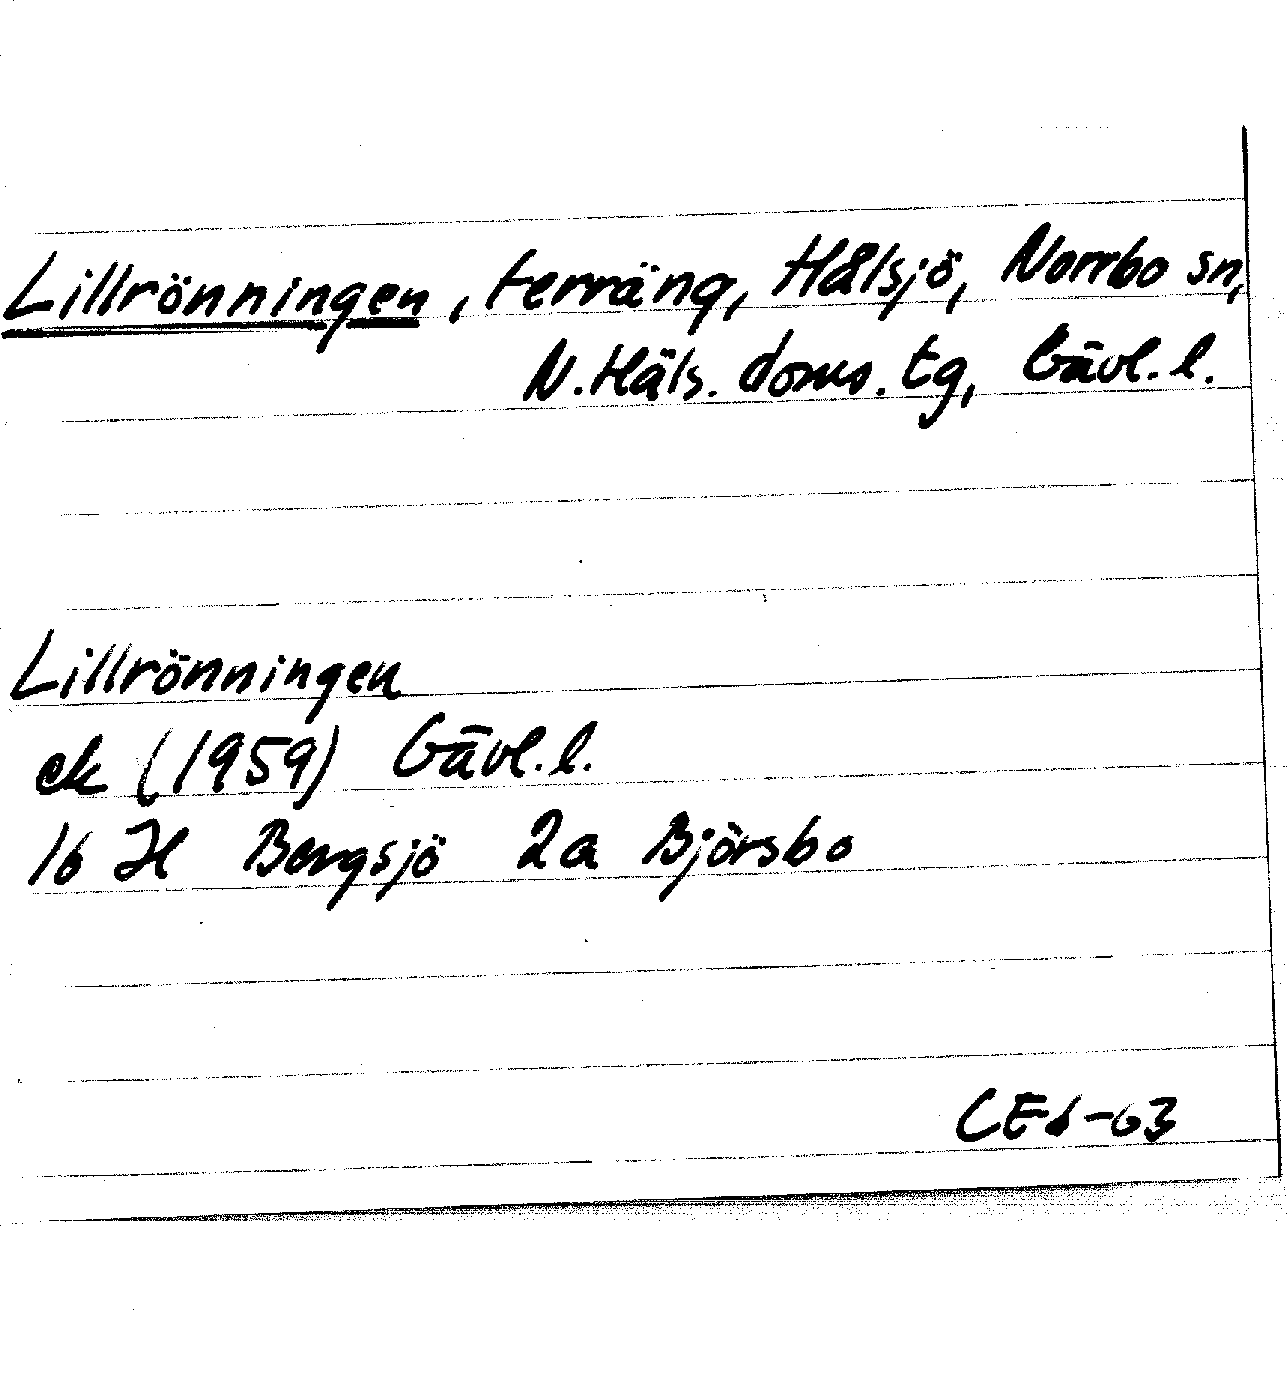 Lillrönningen, terräng, Hålsjö, Norrbo sn,
N. Häls. doms. tg, Gävl. l.
Lillrönningen
ek (1959) Gävl. l.
16 H Bergsjö 2a Björsbo